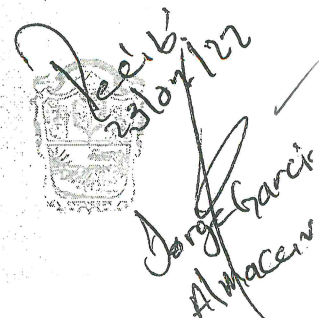 Recibí
23/02/22
Jorge Garcia
Almacen